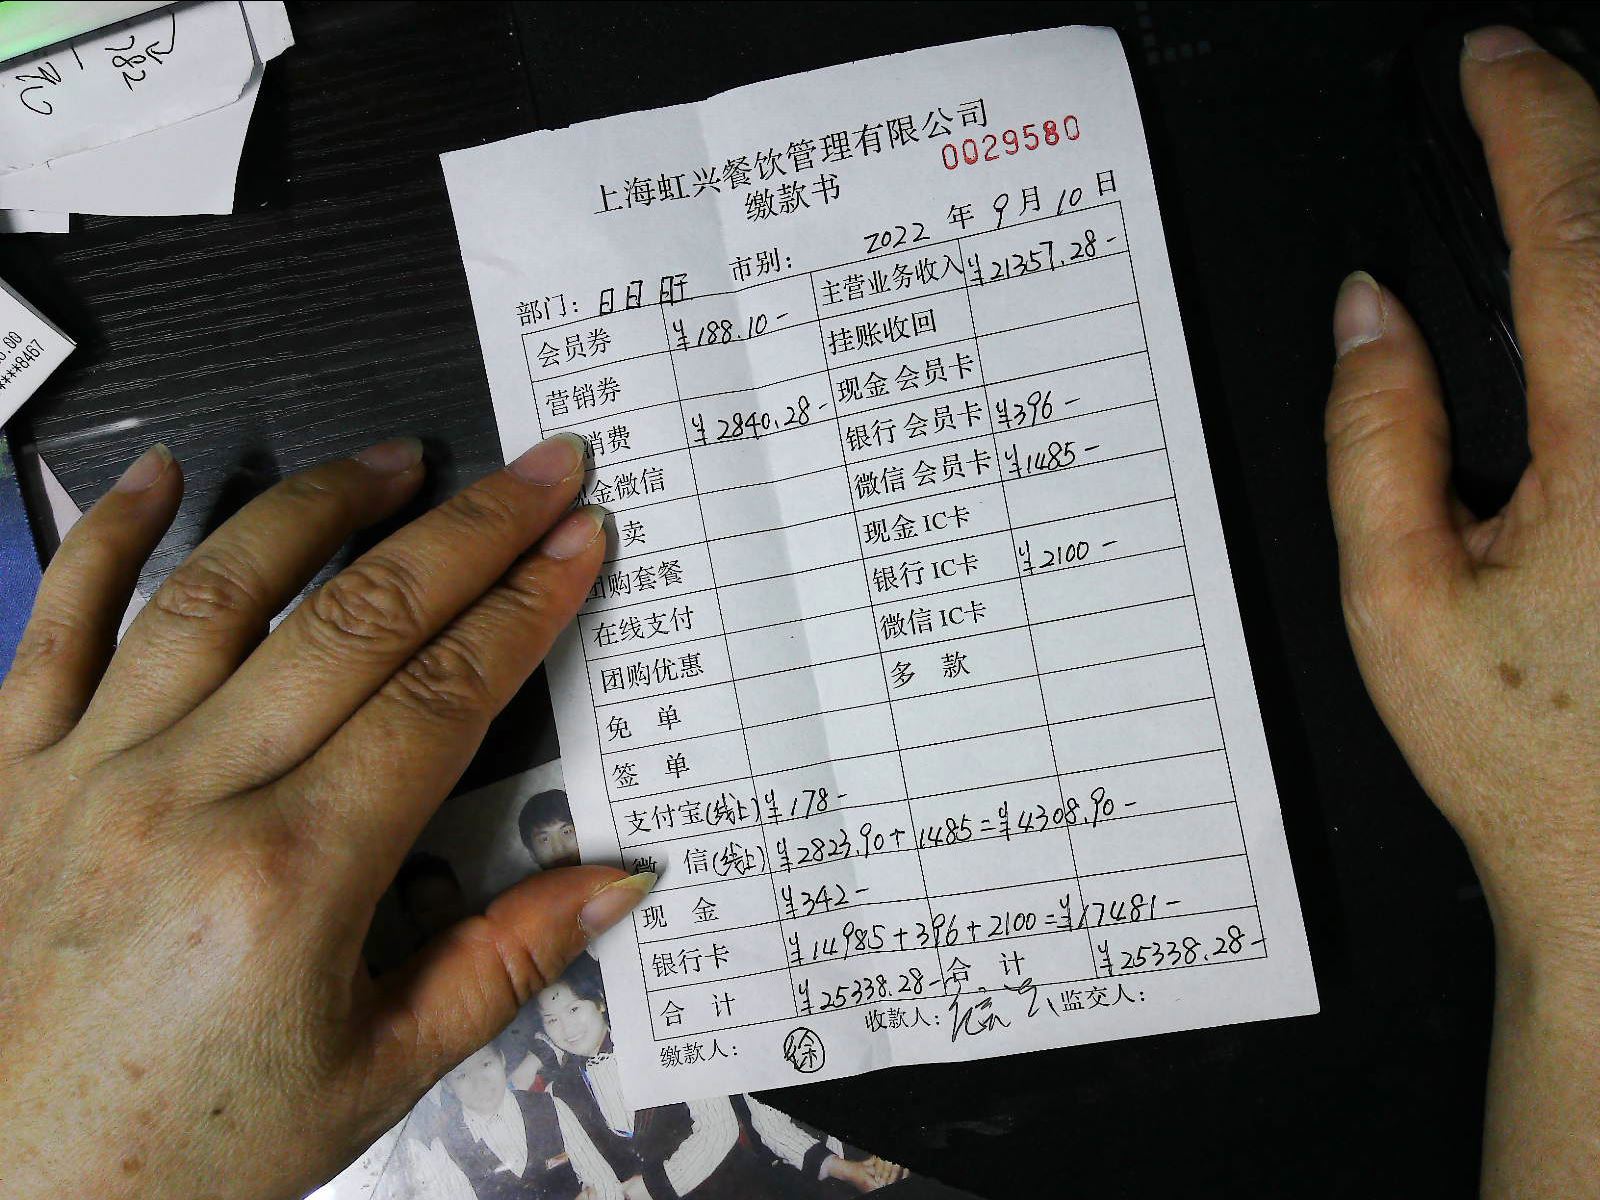 上海虹兴餐饮管理有限公司
缴款书
0029580
部门：日日 市别： 2022 年 9 月 10 日
会员券 ¥188.10- 主营业务收入 ¥21357.28-
营销券 挂账收回
消费 ¥2840.28- 现金 会员卡
金微信 银行 会员卡 ¥396-
卖 微信 会员卡 ¥1485-
团购套餐 现金 IC卡
在线支付 银行 IC卡 ¥2100-
团购优惠 微信 IC卡
免 单 多 款
签 单
支付宝(线上) ¥178-
微 信(线上) ¥2823.90+1485=¥4308.90-
现 金 ¥342-
银行卡 ¥14985+396+2100=¥17481-
合 计 ¥25338.28- 合 计 ¥25338.28-
缴款人： 徐 收款人： 监交人：
282
****8467